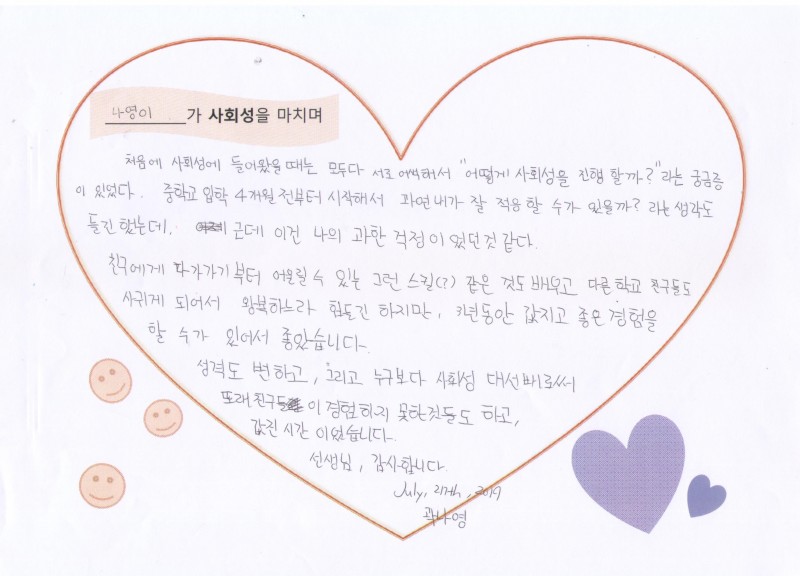 나영이가 사회성을 마치며
처음에 사회성에 들어왔을때는 모두다 서로 어색해서 "어떻게 사회성을 진행 할까?"라는 궁금증
이 있었다. 중학교 입학 4개월 전부터 시작해서 과연내가 잘 적응 할 수가 있을까? 라는 생각도
들긴 했는데, 근데 이건 나의 과한 걱정이 있던것 같다.
친구에게 다가가기부터 어울릴 수 있는 그런 스킬(?) 같은 것도 배우고 다른 학교 친구들도
사귀게 되어서 왕복하느라 힘들긴 하지만, 3년동안 값지고 좋은 경험을
할 수가 있어서 좋았습니다.
성격도 변하고, 그리고 누구보다 사회성 대선배로써
또래 친구들이 경험하지 못한것들도 하고,
값진 시간 이었습니다.
선생님, 감사합니다.
July, 27th, 2019
곽나영